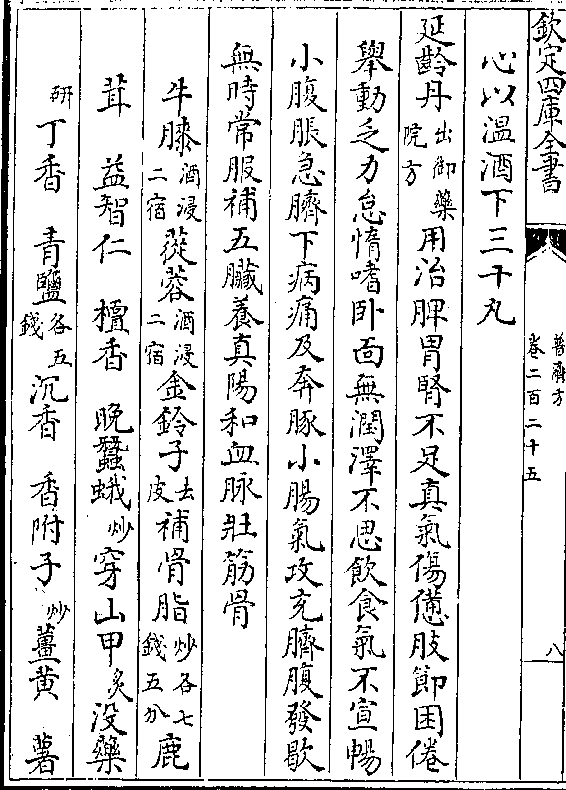 欽定四庫全書
普濟方
卷二百二十五
八
心以温酒下三十丸
延齡丹出御藥院方用治脾胃腎不足真氣傷憊肢節困倦
舉動乏力怠惰嗜卧面無潤澤不思飲食氣不宣暢
小腹脹急臍下病痛及奔豚小腸氣攻充臍腹發歇
無時常服補五臟養真陽和血脉壯筋骨
牛膝酒浸二宿蓯蓉酒浸二宿金鈴子去皮補骨脂炒各七錢五分鹿
茸　益智仁　檀香　晚蠶蛾炒穿山甲炙没藥
研丁香　青鹽各五錢沉香　香附子炒薑黄　薯